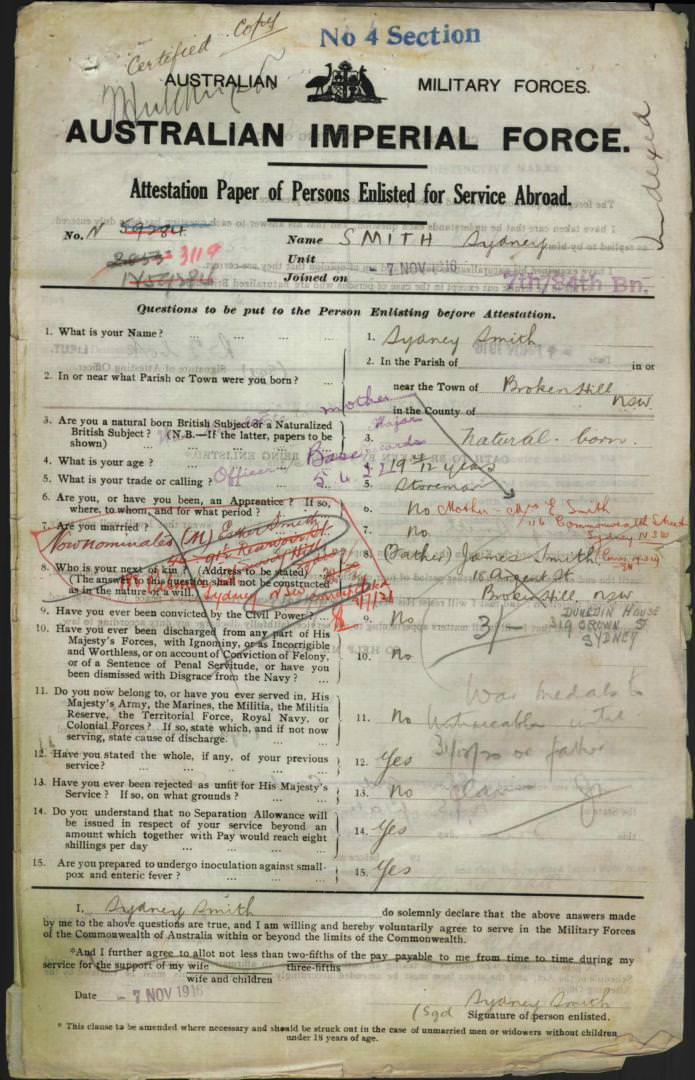 Certified Copy
No 4 Section
AUSTRALIAN MILITARY FORCES.
Indexed
AUSTRALIAN IMPERIAL FORCE.
Attestation Paper of Persons Enlisted for Service Abroad.
No. N 59284
3119
Name SMITH Sydney
Unit
Joined on - 7 NOV 1916
7th/34th Bn.
Questions to be put to the Person Enlisting before Attestation.
1. What is your Name? ... ... ... ...
1. Sydney Smith
2. In or near what Parish or Town were you born? ...
2. In the Parish of in or
near the Town of Broken Hill
in the County of NSW
3. Are you a natural born British Subject or a Naturalized
British Subject? (N.B.—If the latter, papers to be
shown)
3. Natural-born.
mother
Major
Officer i/c Base Records
4. What is your age?
4. 19 years
5. What is your trade or calling?
5. Storeman
6. Are you, or have you been, an Apprentice? If so,
where, to whom, and for what period?
6. No
Mother - Mrs E. Smith
116 Commonwealth Street
Sydney NSW
7. Are you married?
7. No
Now nominates (M) Esther Smith
8. Who is your next of kin? (Address to be stated)
(The answer to this question shall not be constructed
as in the nature of a will.
Sydney NSW
8. (Father) James Smith
18 Argent St.
Broken Hill, NSW
DUNEDIN HOUSE
319 CROWN ST
SYDNEY
3/-
9. Have you ever been convicted by the Civil Power? ...
9. No
10. Have you ever been discharged from any part of His
Majesty's Forces, with Ignominy, or as Incorrigible
and Worthless, or on account of Conviction of Felony,
or of a Sentence of Penal Servitude, or have you
been dismissed with Disgrace from the Navy? ...
10. No
11. Do you now belong to, or have you ever served in, His
Majesty's Army, the Marines, the Militia, the Militia
Reserve, the Territorial Force, Royal Navy, or
Colonial Forces? If so, state which, and if not now
serving, state cause of discharge. ... ...
11. No
War medals to
until
or father
12. Have you stated the whole, if any, of your previous
service? ... ... ... ...
12. Yes
13. Have you ever been rejected as unfit for His Majesty's
Service? If so, on what grounds? ... ...
13. No
14. Do you understand that no Separation Allowance will
be issued in respect of your service beyond an
amount which together with Pay would reach eight
shillings per day ... ... ...
14. Yes
15. Are you prepared to undergo inoculation against small-
pox and enteric fever? ... ... ...
15. Yes
I, Sydney Smith do solemnly declare that the above answers made
by me to the above questions are true, and I am willing and hereby voluntarily agree to serve in the Military Forces
of the Commonwealth of Australia within or beyond the limits of the Commonwealth.
*And I further agree to allot not less than two-fifths of the pay payable to me from time to time during my
service for the support of my wife three-fifths
wife and children
Date - 7 NOV 1916
(Sgd Sydney Smith
Signature of person enlisted.
* This clause to be amended where necessary and should be struck out in the case of unmarried men or widowers without children
under 18 years of age.